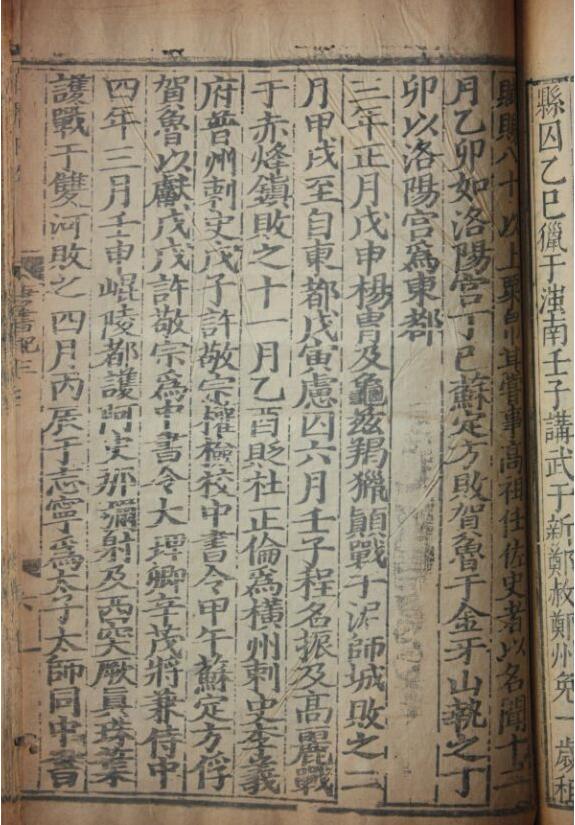 縣囚乙巳獵于滍南壬子講武于新鄭赦鄭州免一歲租
賦賜八十以上粟帛其嘗事高祖任佐史者以名聞十二
月乙卯如洛陽宮丁巳蘇定方敗賀魯于金牙山執之丁
卯以洛陽宮爲東都
三年正月戊申楊胄及龜兹羯獵顛戰于泥師城敗之二
月甲戌至自東都戊寅慮囚六月壬子程名振及高麗戰
于赤烽鎮敗之十一月乙酉貶杜正倫爲橫州刺史李義
府普州刺史戊子許敬宗權檢校中書令甲午蘇定方俘
賀魯以獻戊戌許敬宗爲中書令大理卿辛茂將兼侍中
四年三月壬申崐陵都護阿史那彌射及西突厥真珠葉
護戰于雙河敗之四月丙辰于志寧爲太子太師同中書
唐書紀三